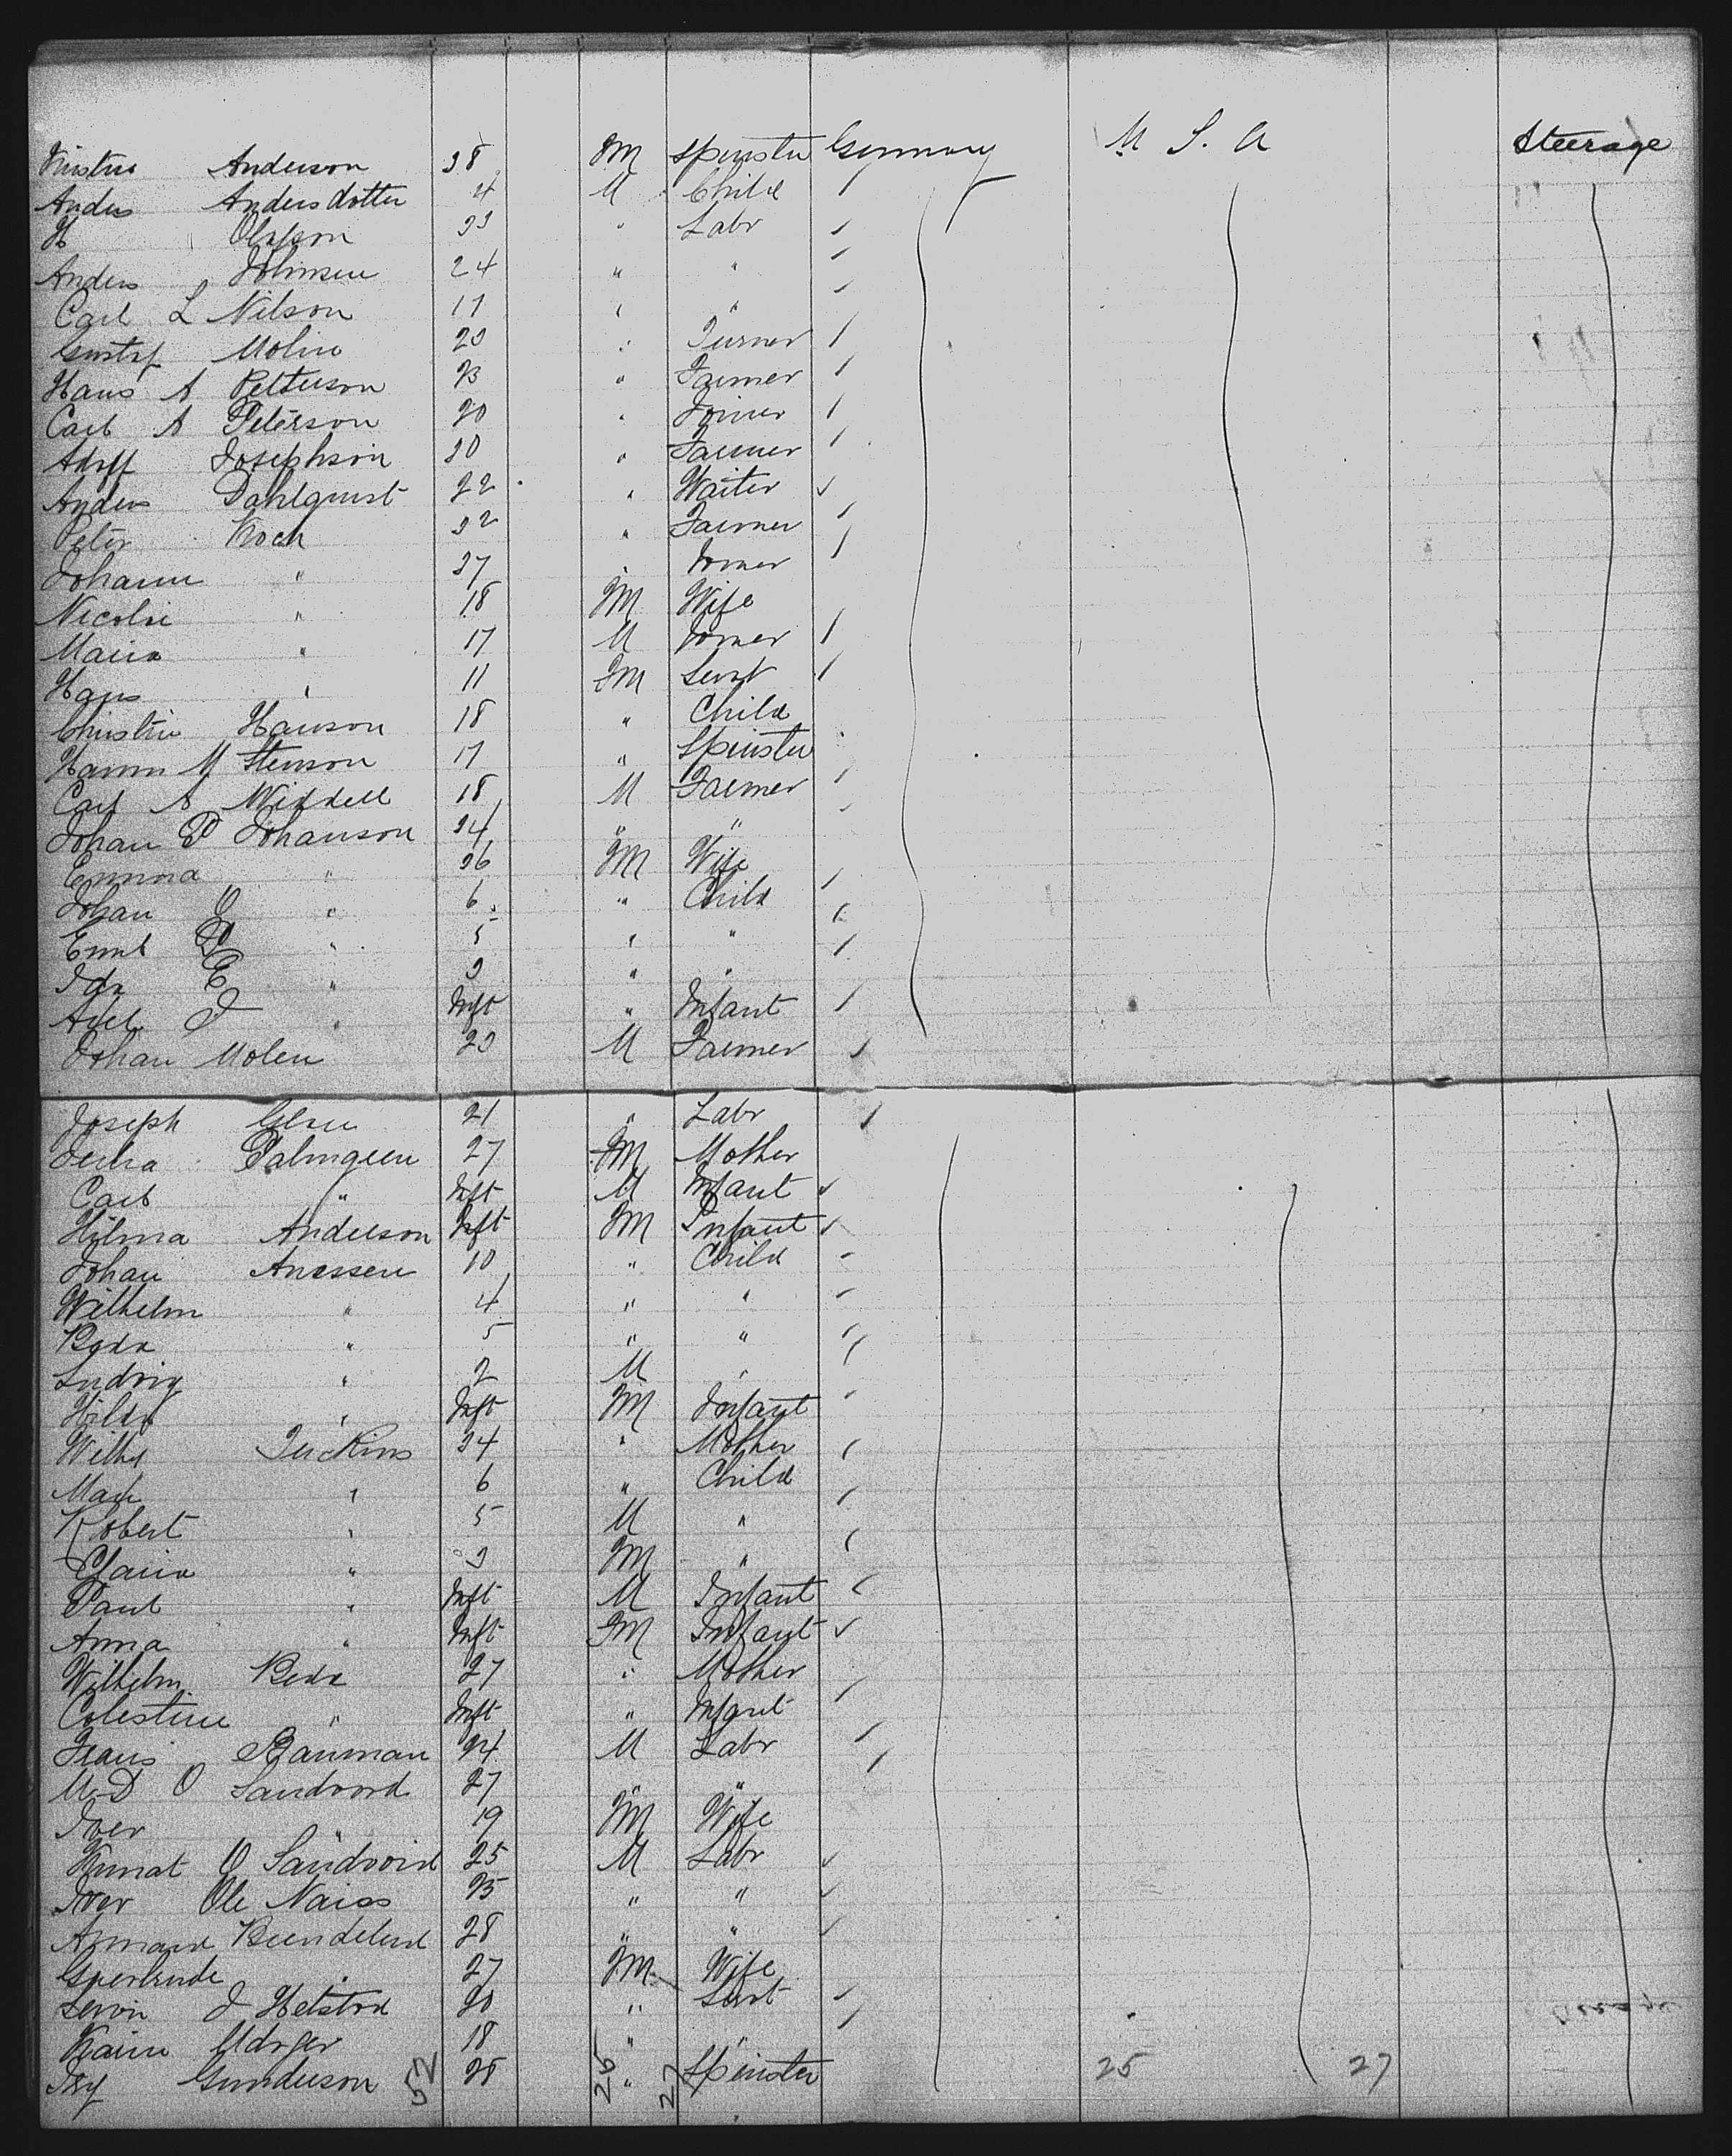 Anderson 28 FM Spinster Germany U. S. A Steerage
Anders Andersdotter 4 M Child
H Olsson 23 " Labr
Anders Johnsen 24 " "
Carl L Nilson 17 " "
Gustaf Molin 20 " Turner
Hans A Petterson 23 " Farmer
Carl A Peterson 20 " Joiner
Adolf Josephson 20 " Farmer
Anders Dahlquist 22 " Waiter
Peter Koch 32 " Farmer
Johann " 27 " Joiner
Nicolie " 18 FM Wife
Maria " 17 M Joiner
Hans " 11 FM Servt
Christin Hanson 18 " Child
Hanna M Stenson 17 " Spinster
Carl A Widdell 18 M Farmer
Johan P Johanson 34 " "
Emma " 26 FM Wife
Johan O " 6 " Child
Emil " 5 " "
Ida E " 3 " "
Axel J " Inft " Infant
Johan Molen 20 M Farmer
Joseph 21 " Labr
Palmgren 27 FM Mother
Carl " Inft M Infant
Hilma Anderson Inft FM Infant
Johan Anessen 10 " Child
Wilhelm " 4 " "
Beda " 5 " "
Ludvig " 2 M "
Hilda " Inft FM Infant
34 " Mother
" 6 " Child
Robert " 5 M "
Claira " 3 FM "
Paul " Inft M Infant
Anna " Inft FM Infant
Wilhelm Beda 27 " Mother
Colestine " Inft " Infant
Frans Bauman 24 M Labr
M D O Sandvord 27 " "
Iver 19 FM Wife
Kunat O Sandvord 25 M Labr
Iver Ole Naiss 25 " "
28 " "
Guertrude " 27 FM Wife
J Helstod 20 " Servt
18 " "
Gunderson 52 28 25 " 27 Spinster 25 27